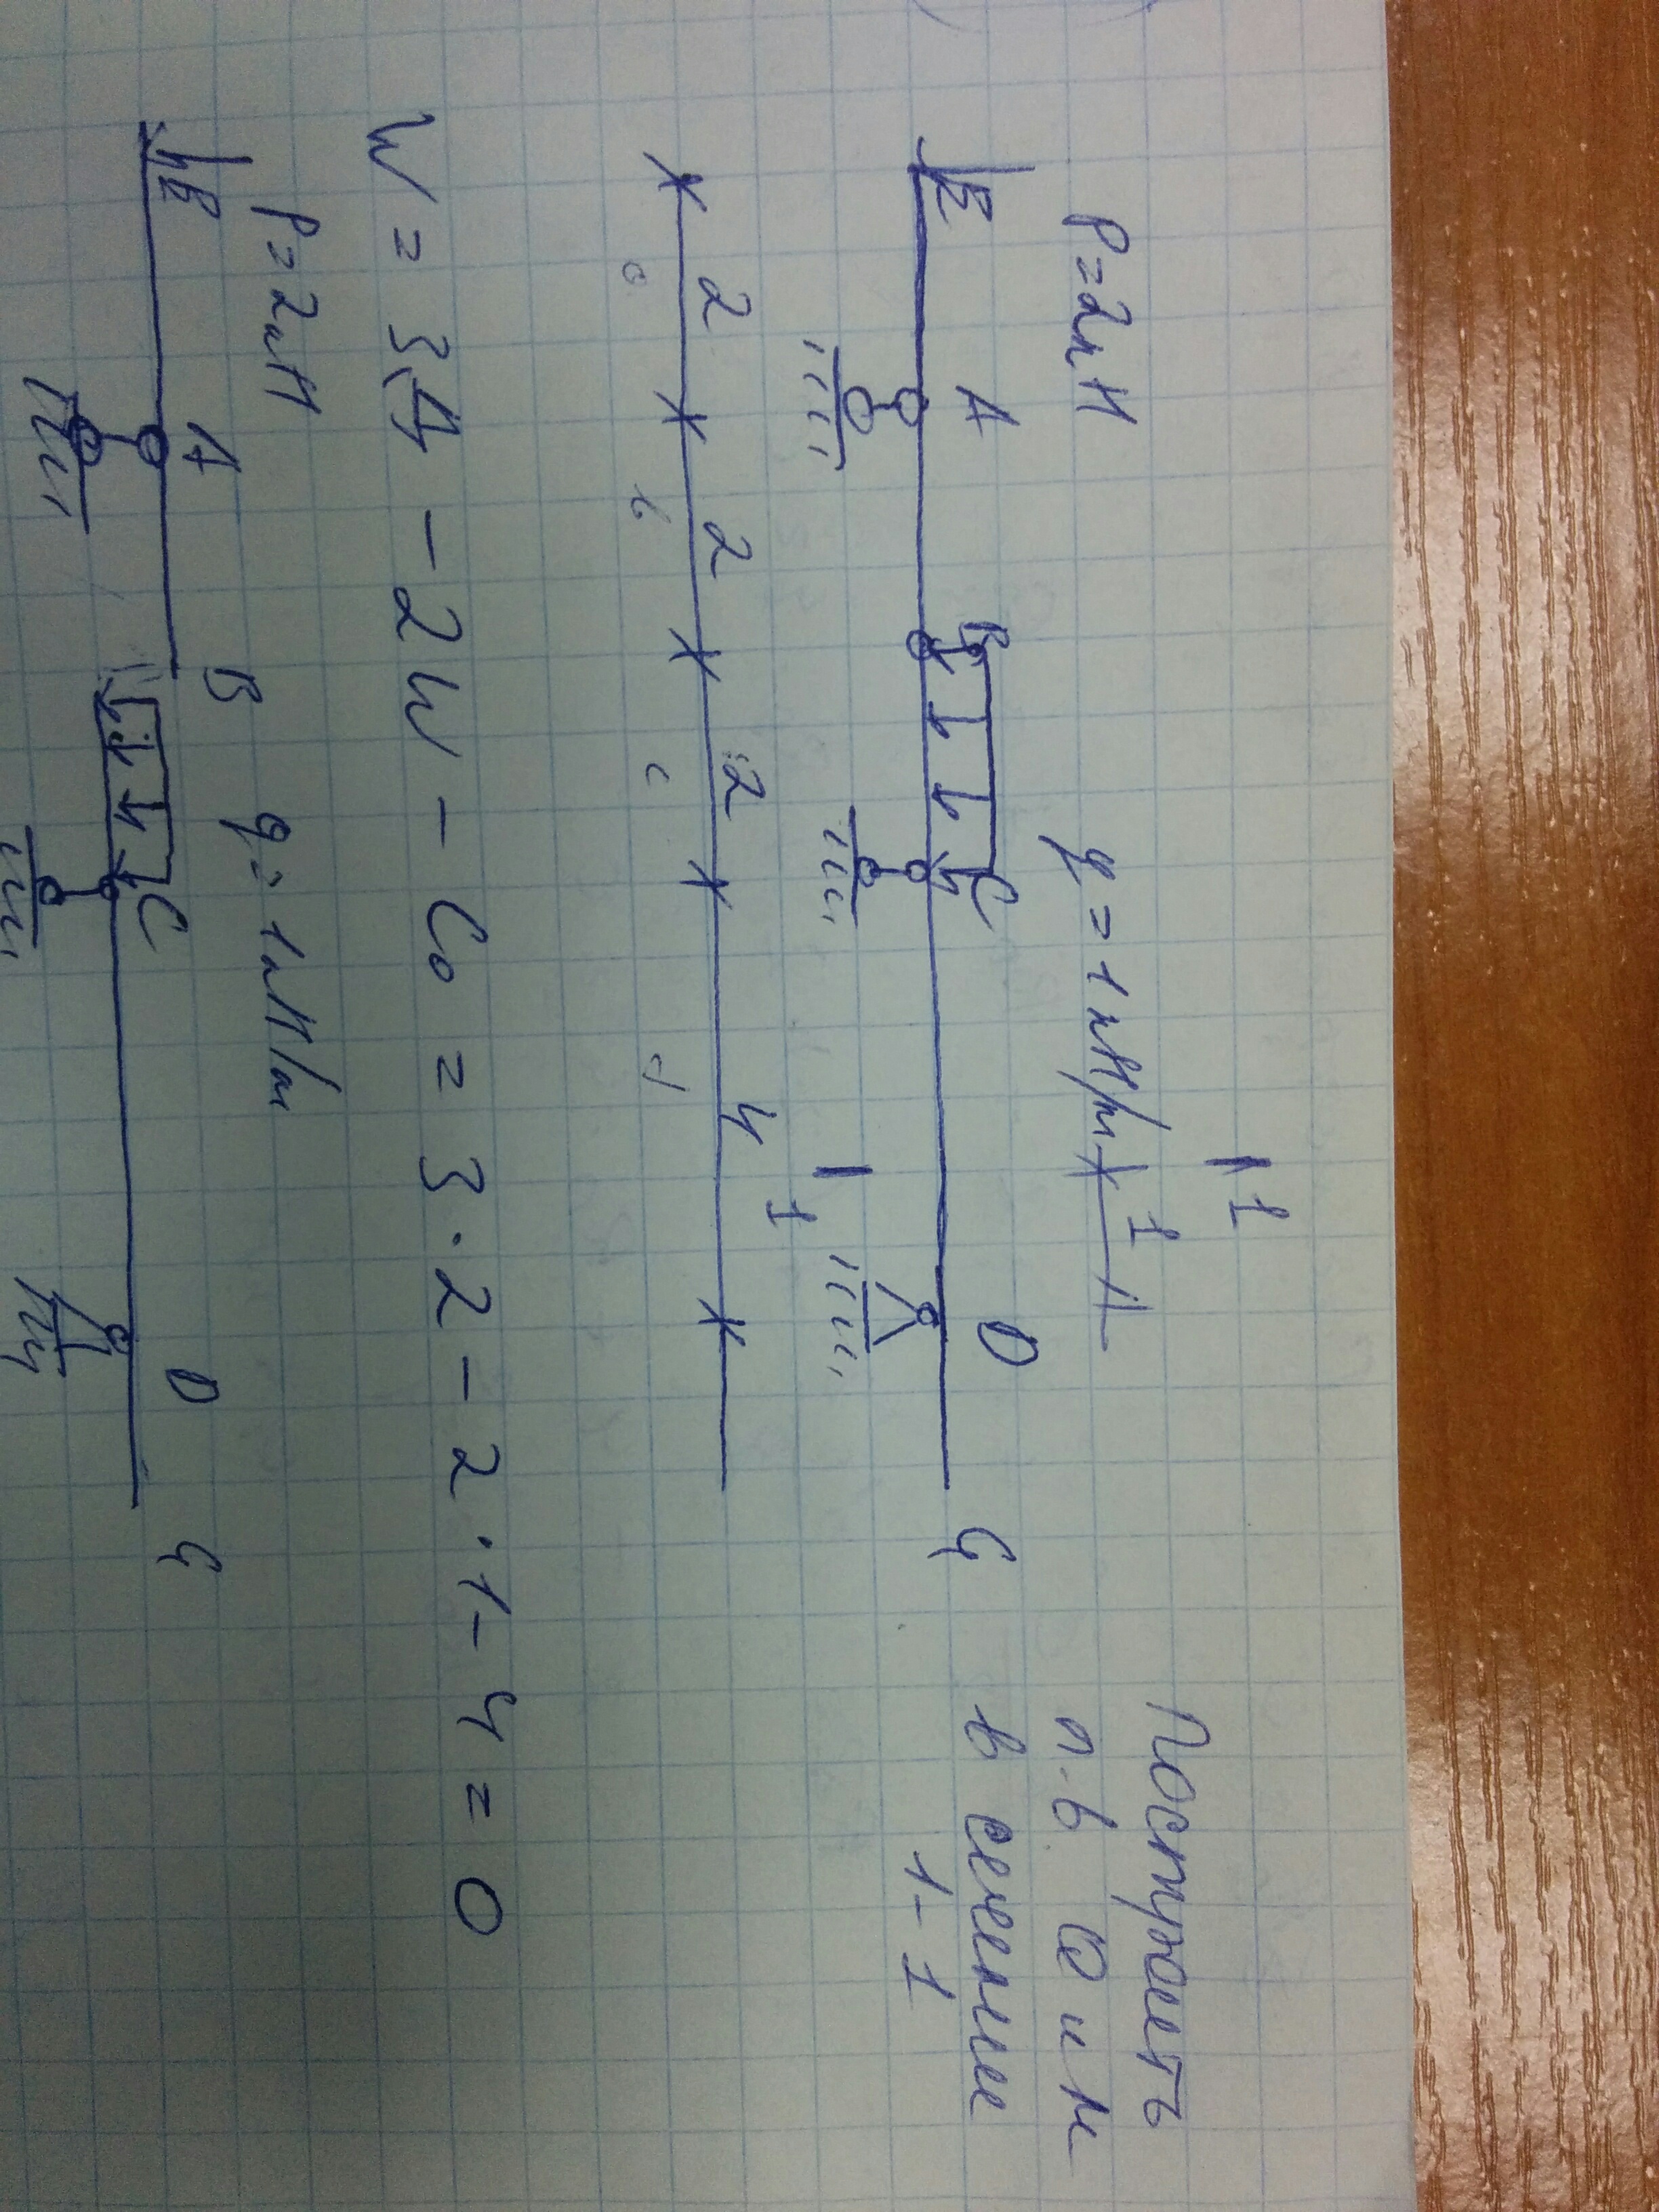 Построить
л.в. Q и М
в сечении
1-1
1
P=2кН
q=1кН/м
1
E
A
B
C
D
G
2
2
2
4
1
a
b
c
d
W = 3Д - 2Ш - Со = 3·2 - 2·1 - 4 = 0
P=2кН
q=1кН/м
E
A
B
C
D
G